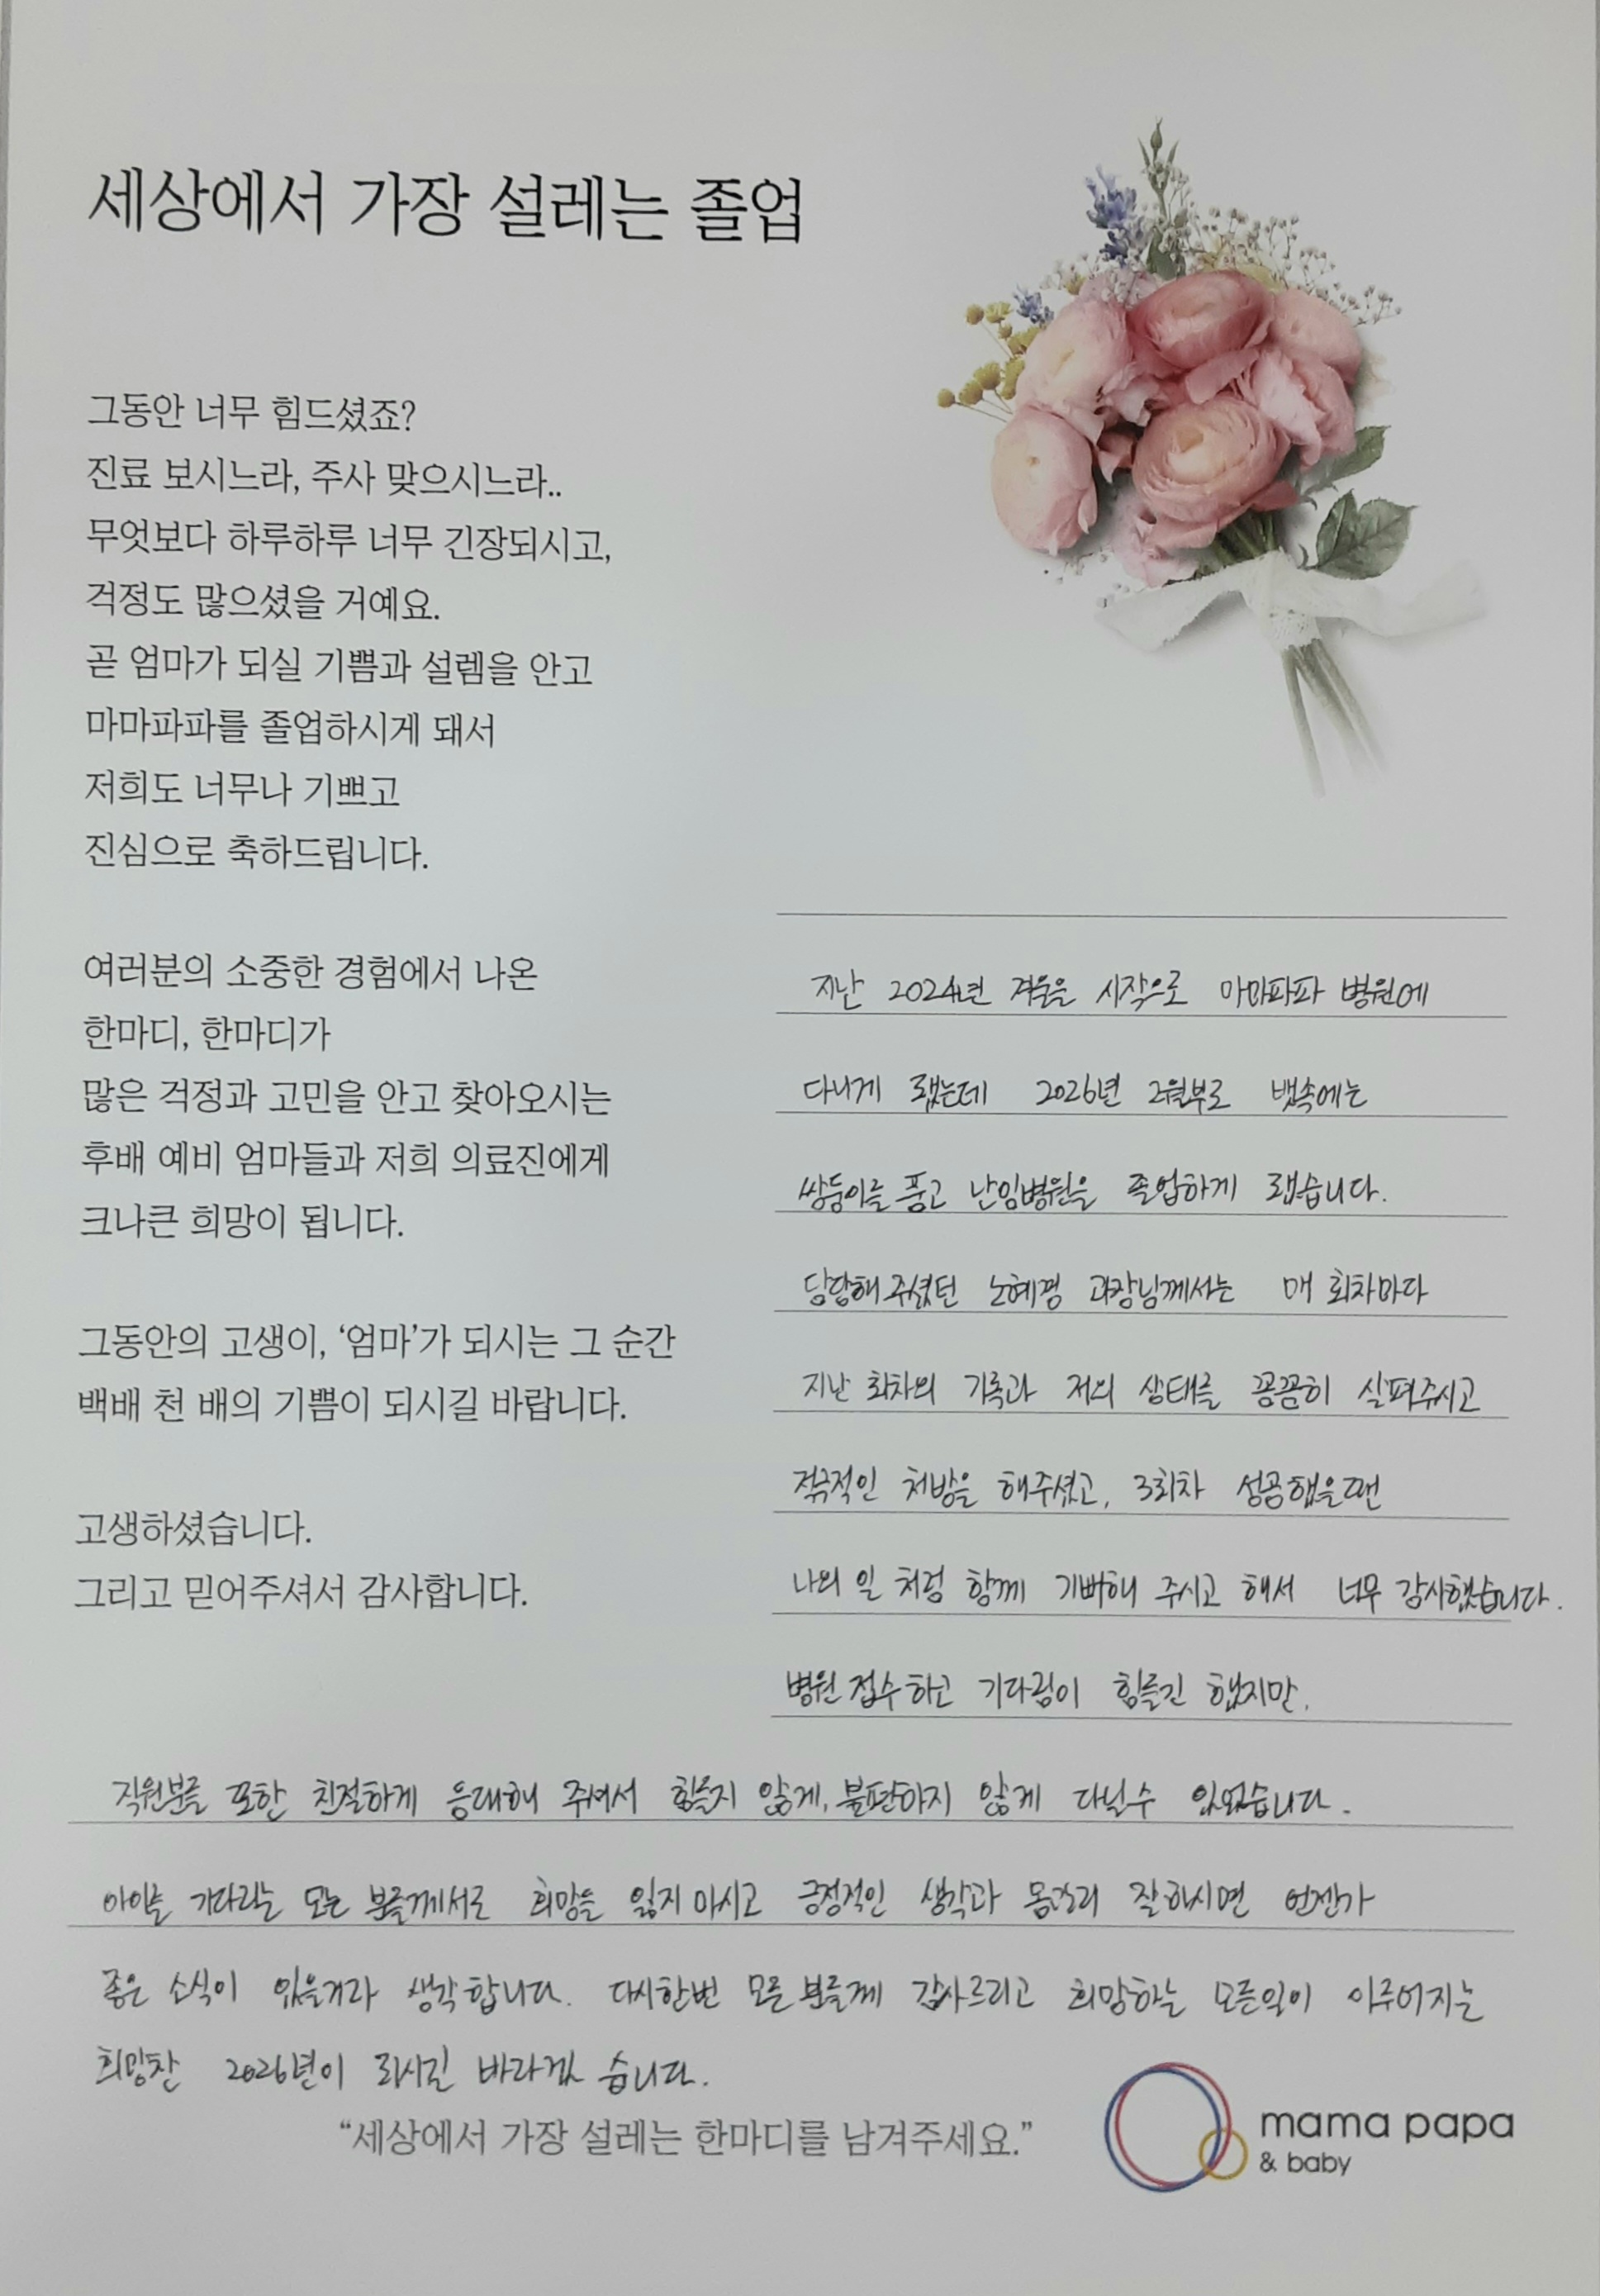 세상에서 가장 설레는 졸업
그동안 너무 힘드셨죠?
진료 보시느라, 주사 맞으시느라..
무엇보다 하루하루 너무 긴장되시고,
걱정도 많으셨을 거예요.
곧 엄마가 되실 기쁨과 설렘을 안고
마마파파를 졸업하시게 돼서
저희도 너무나 기쁘고
진심으로 축하드립니다.
여러분의 소중한 경험에서 나온
한마디, 한마디가
많은 걱정과 고민을 안고 찾아오시는
후배 예비 엄마들과 저희 의료진에게
크나큰 희망이 됩니다.
그동안의 고생이, ‘엄마’가 되시는 그 순간
백배 천 배의 기쁨이 되시길 바랍니다.
고생하셨습니다.
그리고 믿어주셔서 감사합니다.
지난 2024년 겨울을 시작으로 마마파파 병원에
다니게 됐는데 2026년 2월부로 뱃속에는
쌍둥이를 품고 난임병원을 졸업하게 됐습니다.
담당해 주셨던 노혜령 과장님께서는 매 회차마다
지난 회차의 기록과 저의 상태를 꼼꼼히 살펴주시고
적극적인 처방을 해주셨고, 3회차 성공했을땐
나의 일 처럼 함께 기뻐해 주시고 해서 너무 감사했습니다.
병원 접수하고 기다림이 힘들긴 했지만,
직원분들 또한 친절하게 응대해 주셔서 힘들지 않게, 불편하지 않게 다닐수 있었습니다.
아이를 기다리는 모든 분들께서도 희망을 잃지 마시고 긍정적인 생각과 몸관리 잘하시면 언젠가
좋은 소식이 있을거라 생각합니다. 다시한번 모든분들께 감사드리고 희망하는 모든일이 이루어지는
희망찬 2026년이 되시길 바라겠습니다.
“세상에서 가장 설레는 한마디를 남겨주세요.”
mama papa
& baby